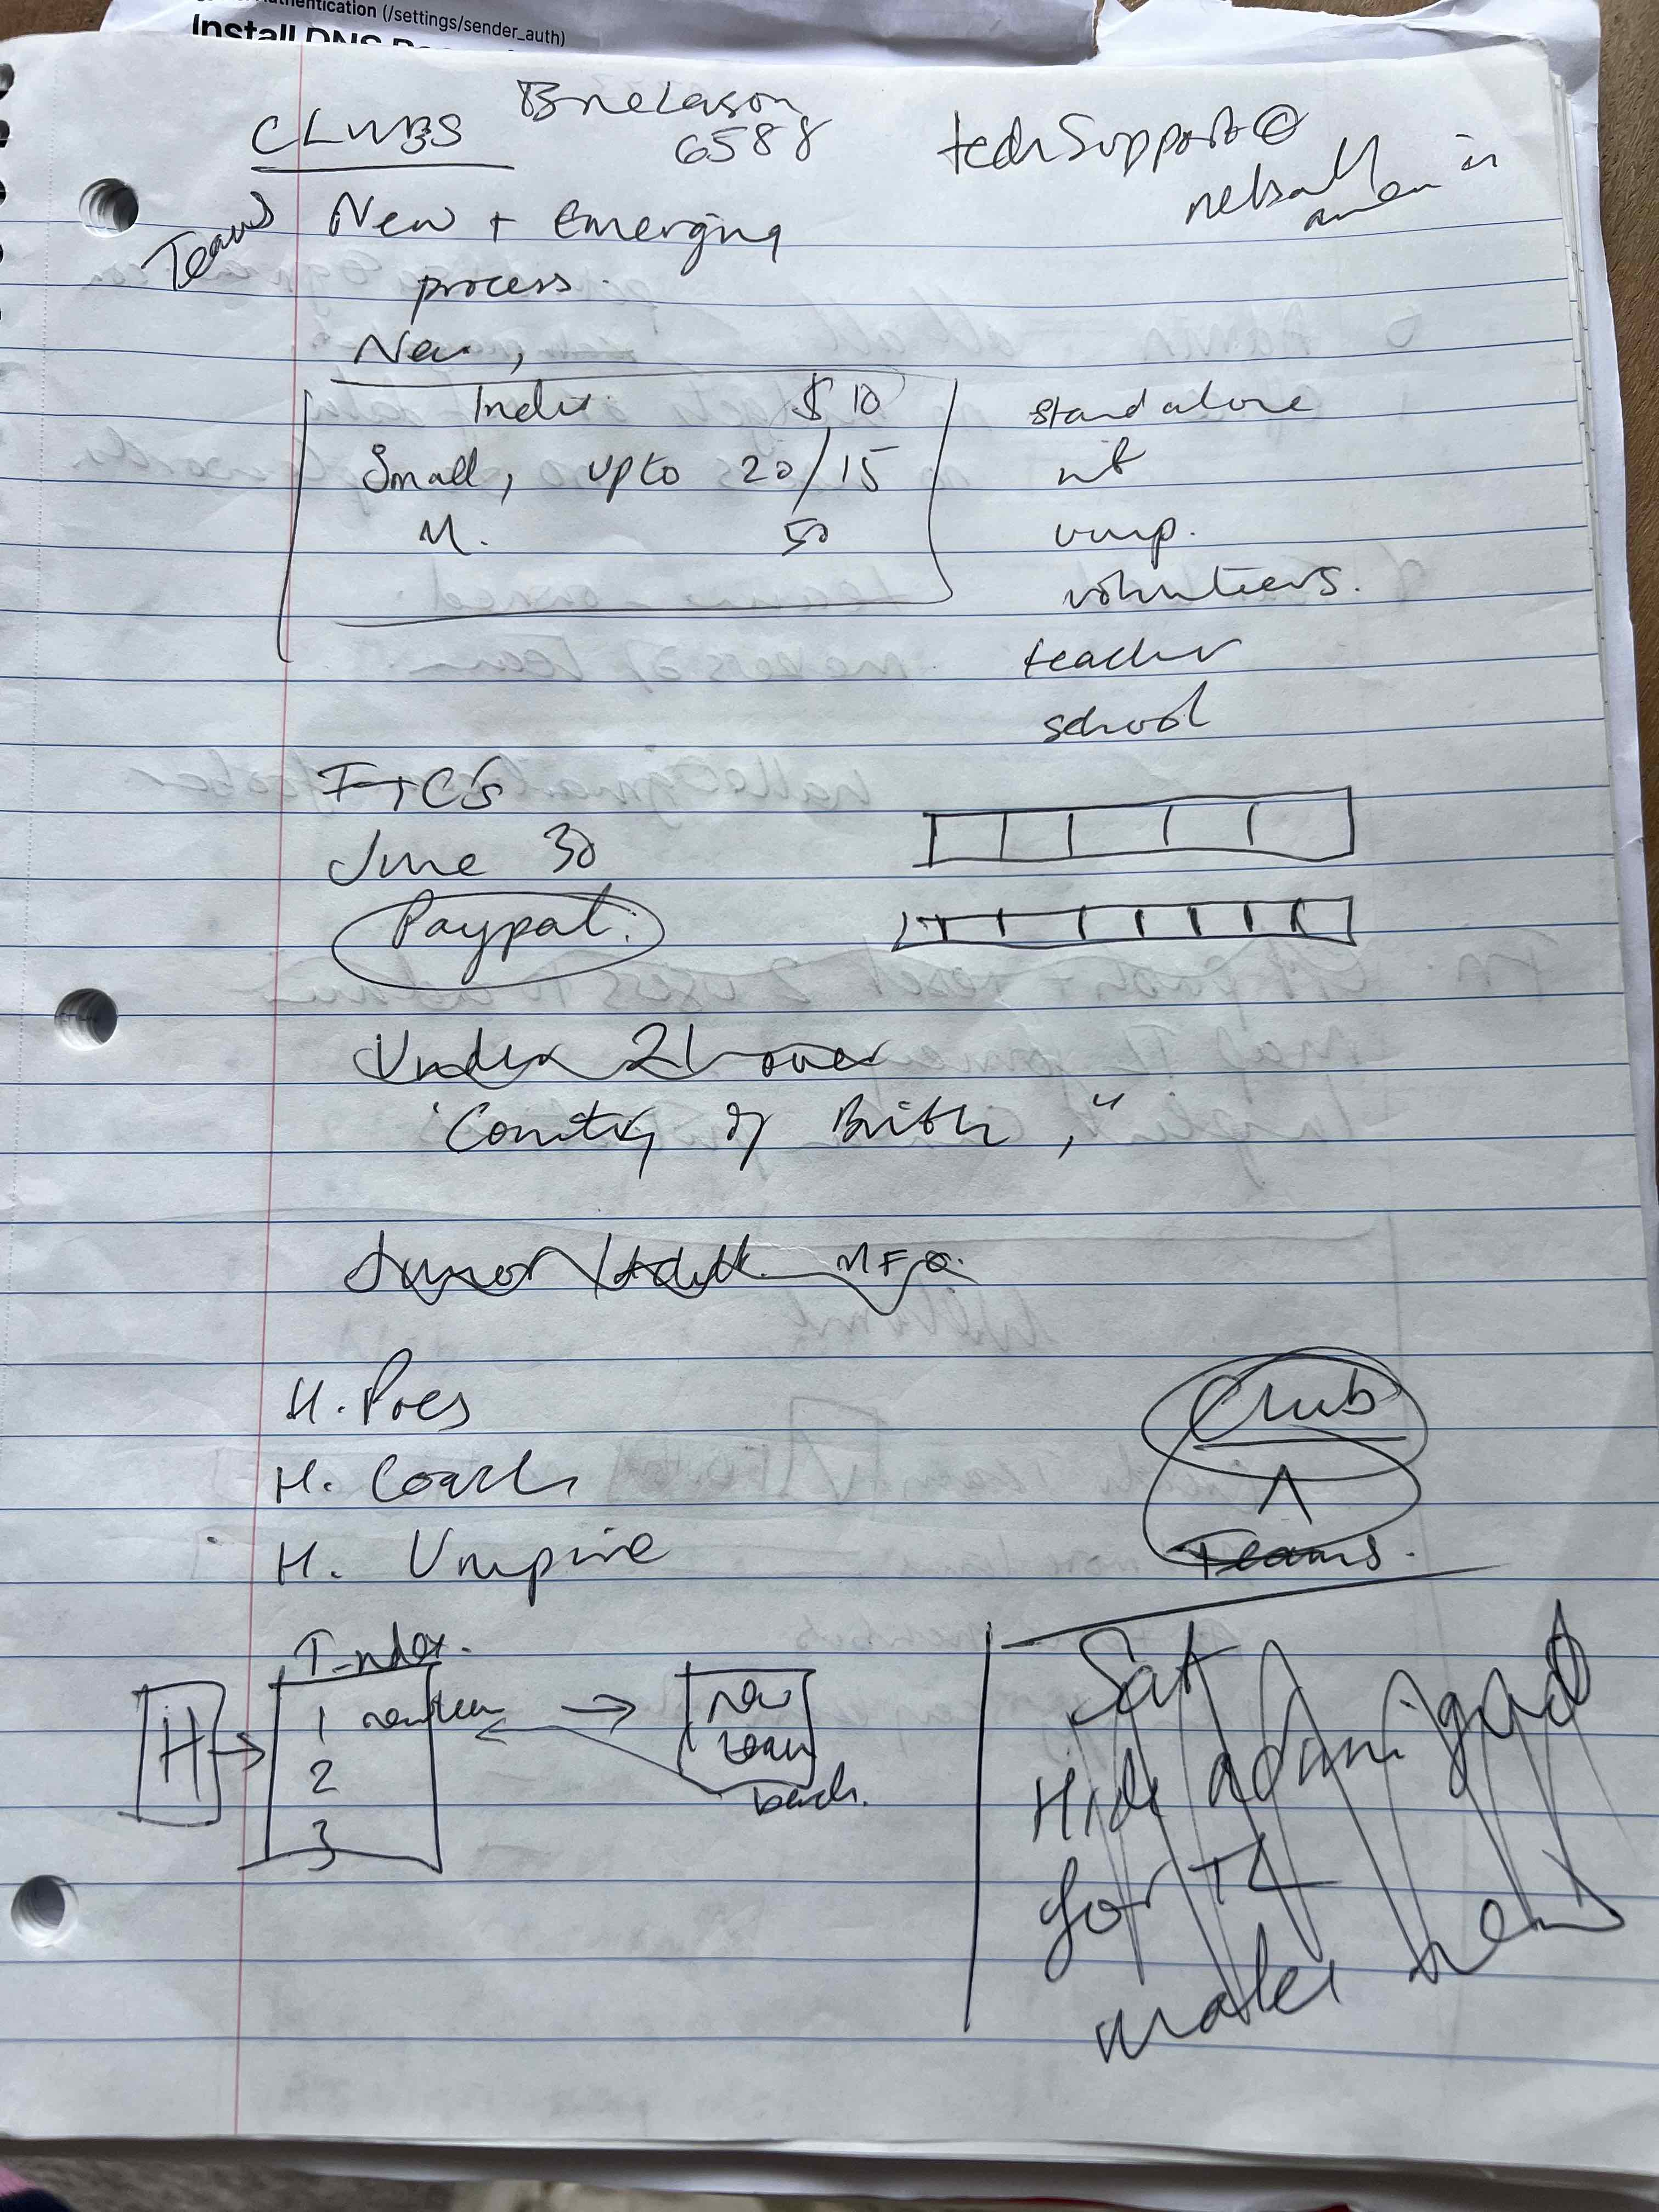 Authentication (/settings/sender_auth)
Install DNS
CLUBS
6588
techSupport@
netball
Teams
New + Emerging
process.
New,
Indiv. $10
Small, upto 20/15
M. 50
standalone
int
ump.
volunteers.
teacher
school
June 30
Paypal.
Under 21 over
"Country of Birth,"
Junor/Adult M F O.
H. Pres
H. Coach
H. Umpire
Club
Teams.
H
T_ndex.
1 new team
2
3
new
team
back.
Sat
Hide admin grid
for TL
make new